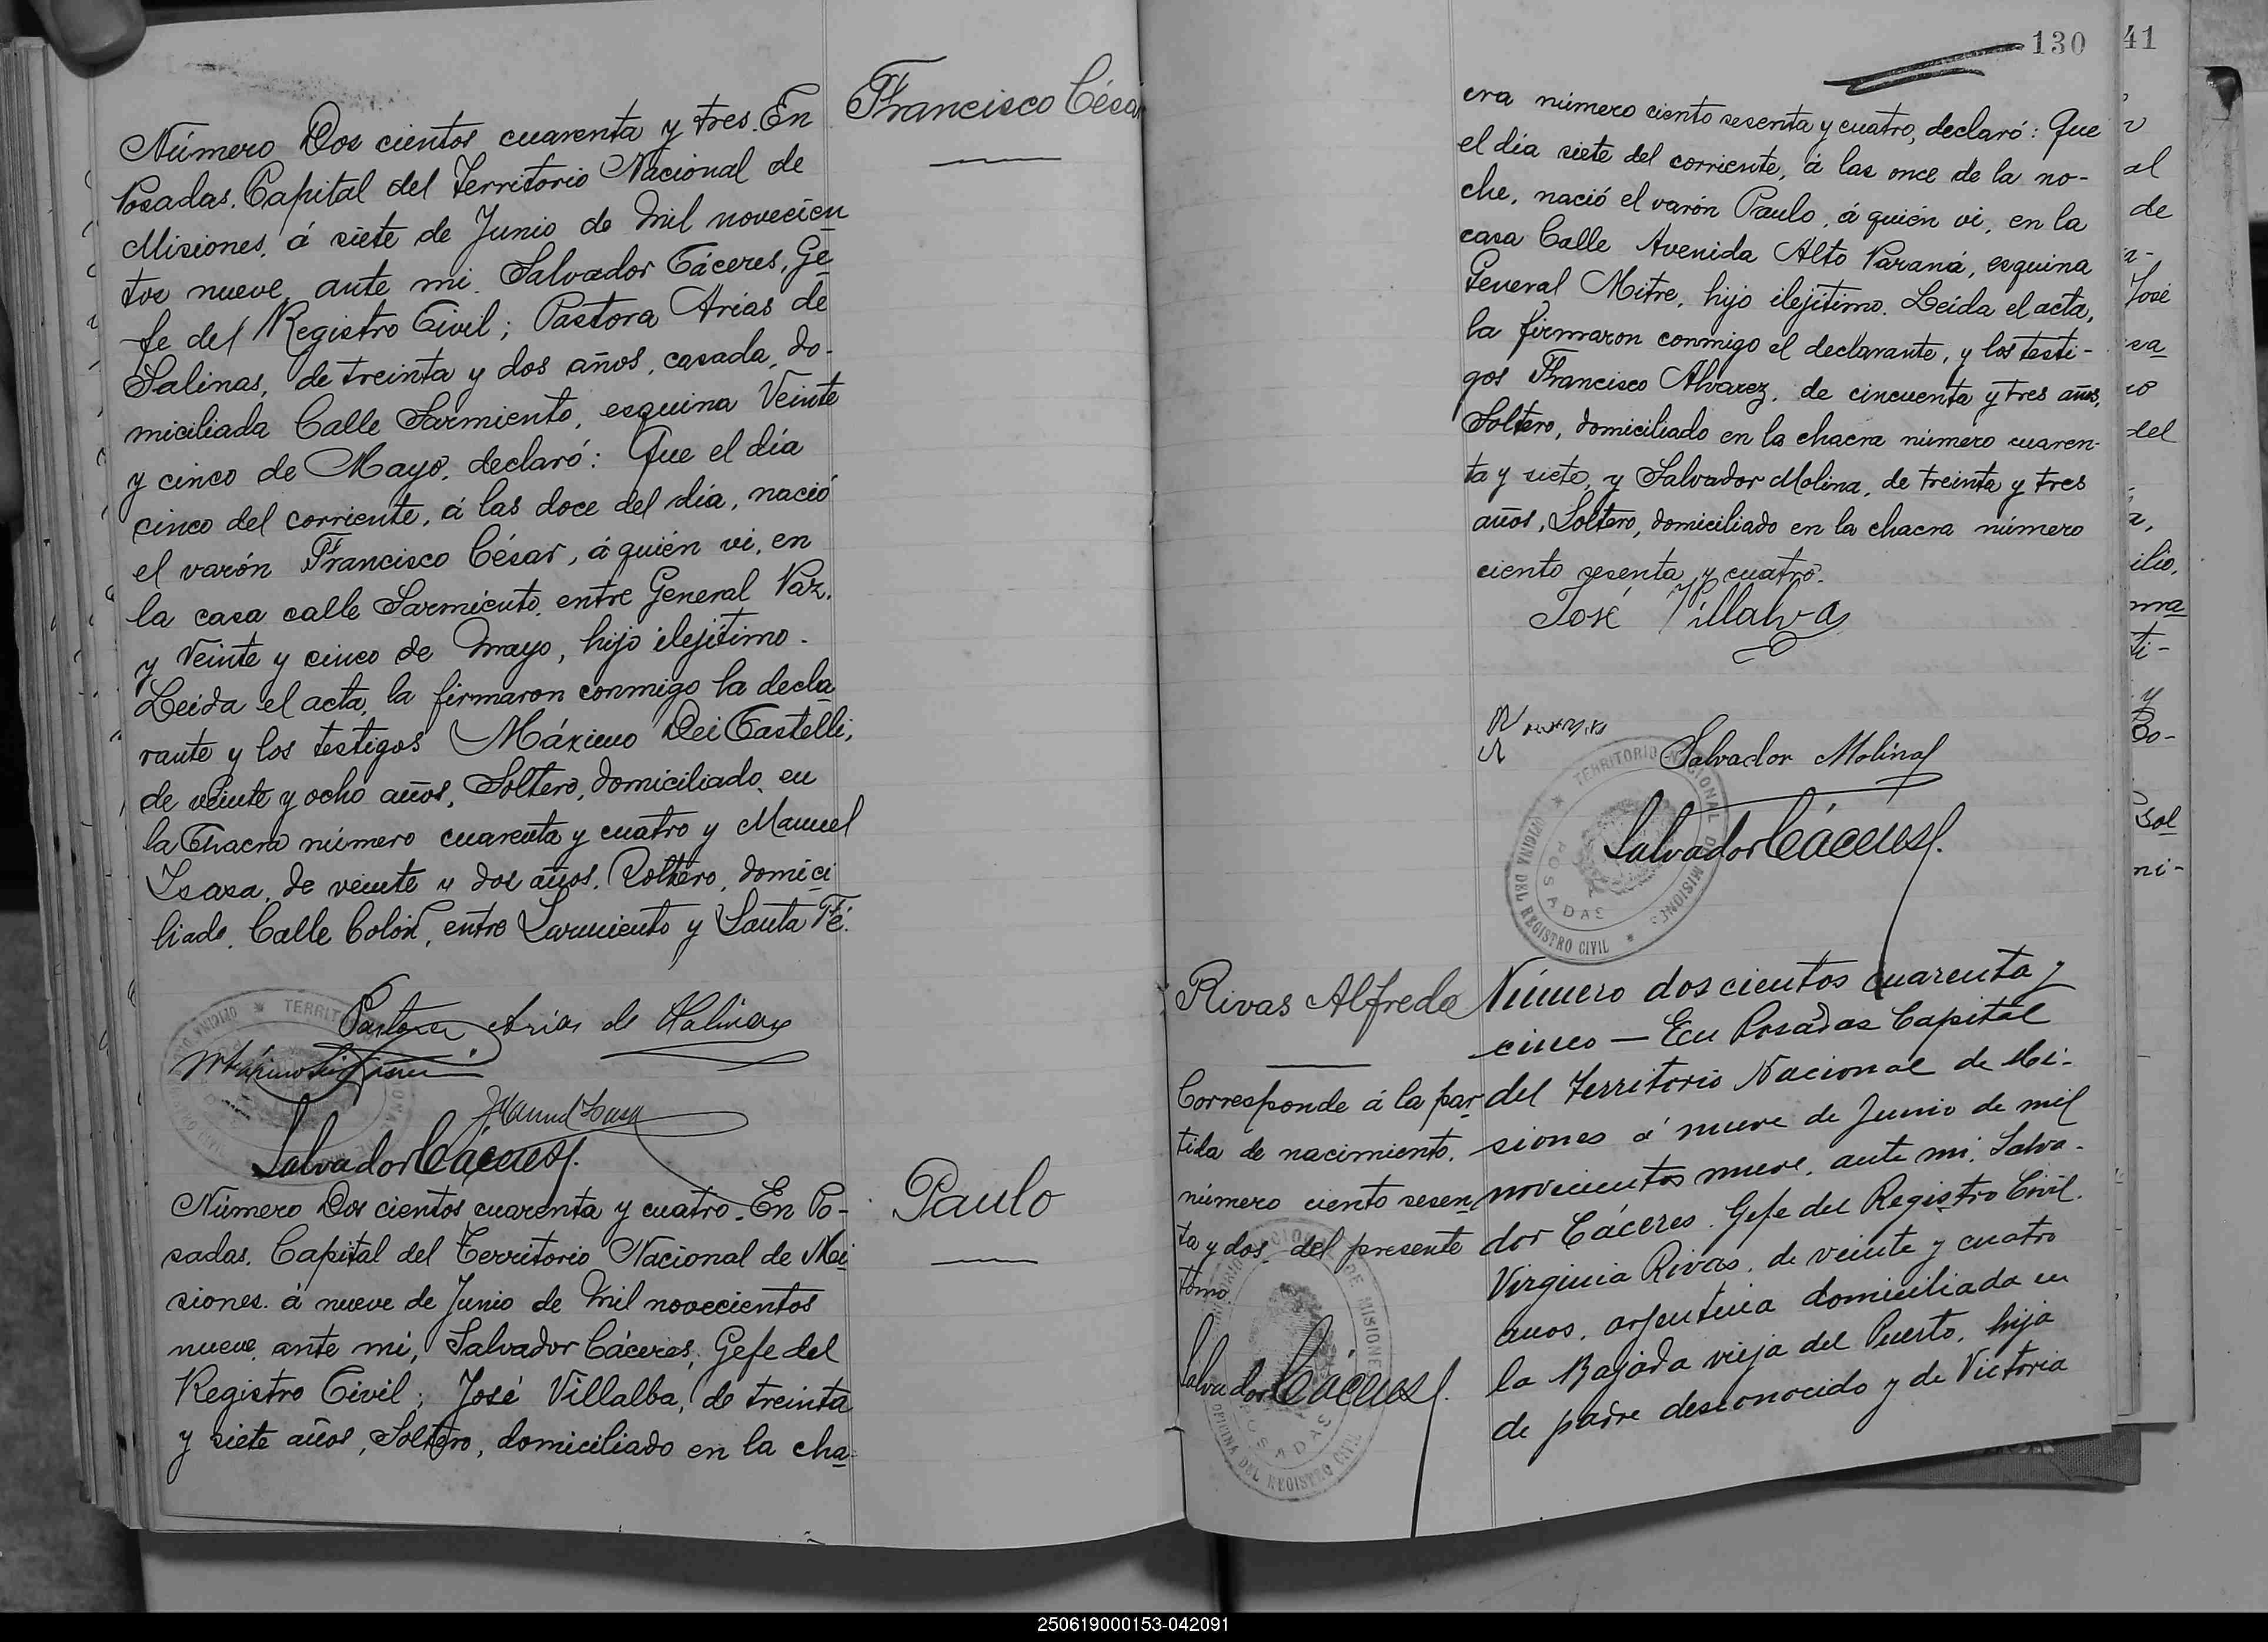 Francisco César
Número Dos cientos cuarenta y tres. En
Posadas. Capital del Territorio Nacional de
Misiones. á siete de Junio de Mil novecien
tos nueve, ante mi. Salvador Cáceres, Ge
fe del Registro Civil; Pastora Arias de
Salinas, de treinta y dos años, casada, do-
miciliada Calle Sarmiento, esquina Veinte
y cinco de Mayo, declaró: Que el día
cinco del corriente, á las doce del día, nació
el varón Francisco César, á quién vi, en
la casa calle Sarmiento, entre General Paz,
y Veinte y cinco de Mayo, hijo ilejítimo.
Leida el acta, la firmaron conmigo la decla
rante y los testigos Máximo Dei Castelli,
de veinte y ocho años, Soltero, domiciliado, en
la Chacra número cuarenta y cuatro y Manuel
Isasa, de veinte y dos años, Soltero, domici
liado, Calle Colón, entre Sarmiento y Santa Fé.
Pastora Arias de Salinas
Salvador Cáceres.
Paulo
Número Dos cientos cuarenta y cuatro. En Po-
sadas. Capital del Territorio Nacional de Mi
siones. á nueve de Junio de Mil novecientos
nueve, ante mi, Salvador Cáceres, Gefe del
Registro Civil; José Villalba, de treinta
y siete años, Soltero, domiciliado en la cha
130
cra número ciento sesenta y cuatro, declaró: Que
el día siete del corriente, á las once de la no-
che, nació el varón Paulo, á quién vi, en la
casa Calle Avenida Alto Paraná, esquina
General Mitre, hijo ilejítimo. Leida el acta,
la firmaron conmigo el declarante, y los testi-
gos Francisco Alvarez, de cincuenta y tres años,
Soltero, domiciliado en la chacra número cuaren-
ta y siete, y Salvador Molina, de treinta y tres
años, Soltero, domiciliado en la chacra número
ciento sesenta y cuatro.
José Villalva
Salvador Molina
Salvador Cáceres.
TERRITORIO NACIONAL DE MISIONES
OFICINA DEL REGISTRO CIVIL
POSADAS
Rivas Alfredo
Corresponde á la par
tida de nacimiento,
número ciento sesen
ta y dos, del presente
tomo.
Salvador Cáceres.
Número doscientos cuarenta y
cinco — En Posadas Capital
del Territorio Nacional de Mi-
siones á nueve de Junio de mil
novecientos nueve, ante mi, Salva-
dor Cáceres. Gefe del Registro Civil.
Virginia Rivas, de veinte y cuatro
anos, arjentina domiciliada en
la Bajada vieja del Puerto, hija
de padre desconocido y de Victoria
41
al
de
José
del
250619000153-042091